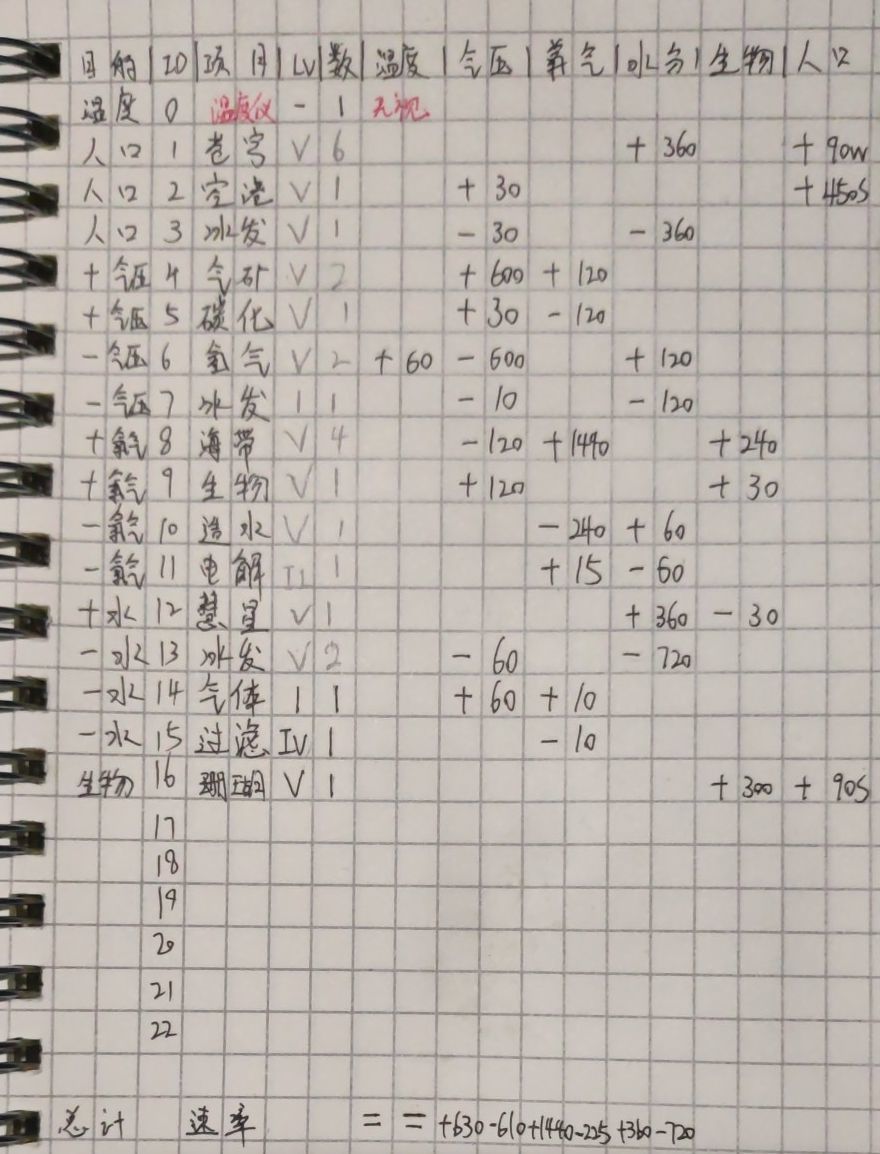 目的 | ID | 项目 | LV | 数 | 温度 | 气压 | 氧气 | 水分 | 生物 | 人口
温度 0 温度仪 - 1 无视
人口 1 苍穹 V 6 + 360 + 90W
人口 2 空港 V 1 + 30 + 450S
人口 3 水发 V 1 - 30 - 360
+ 气压 4 气矿 V 2 + 600 + 120
+ 气压 5 碳化 V 1 + 30 - 120
- 气压 6 氢气 V 2 + 60 - 600 + 120
- 气压 7 水发 I 1 - 10 - 120
+ 氧气 8 海带 V 4 - 120 + 1440 + 240
+ 氧气 9 生物 V 1 + 120 + 30
- 氧气 10 造水 V 1 - 240 + 60
- 氧气 11 电解 II 1 + 15 - 60
+ 水 12 慧星 V 1 + 360 - 30
- 水 13 水发 V 2 - 60 - 720
- 水 14 气体 I 1 + 60 + 10
- 水 15 过滤 IV 1 - 10
生物 16 珊瑚 V 1 + 300 + 90S
17
18
19
20
21
22
总计 速率 = = +630-610+1440-225+360-720